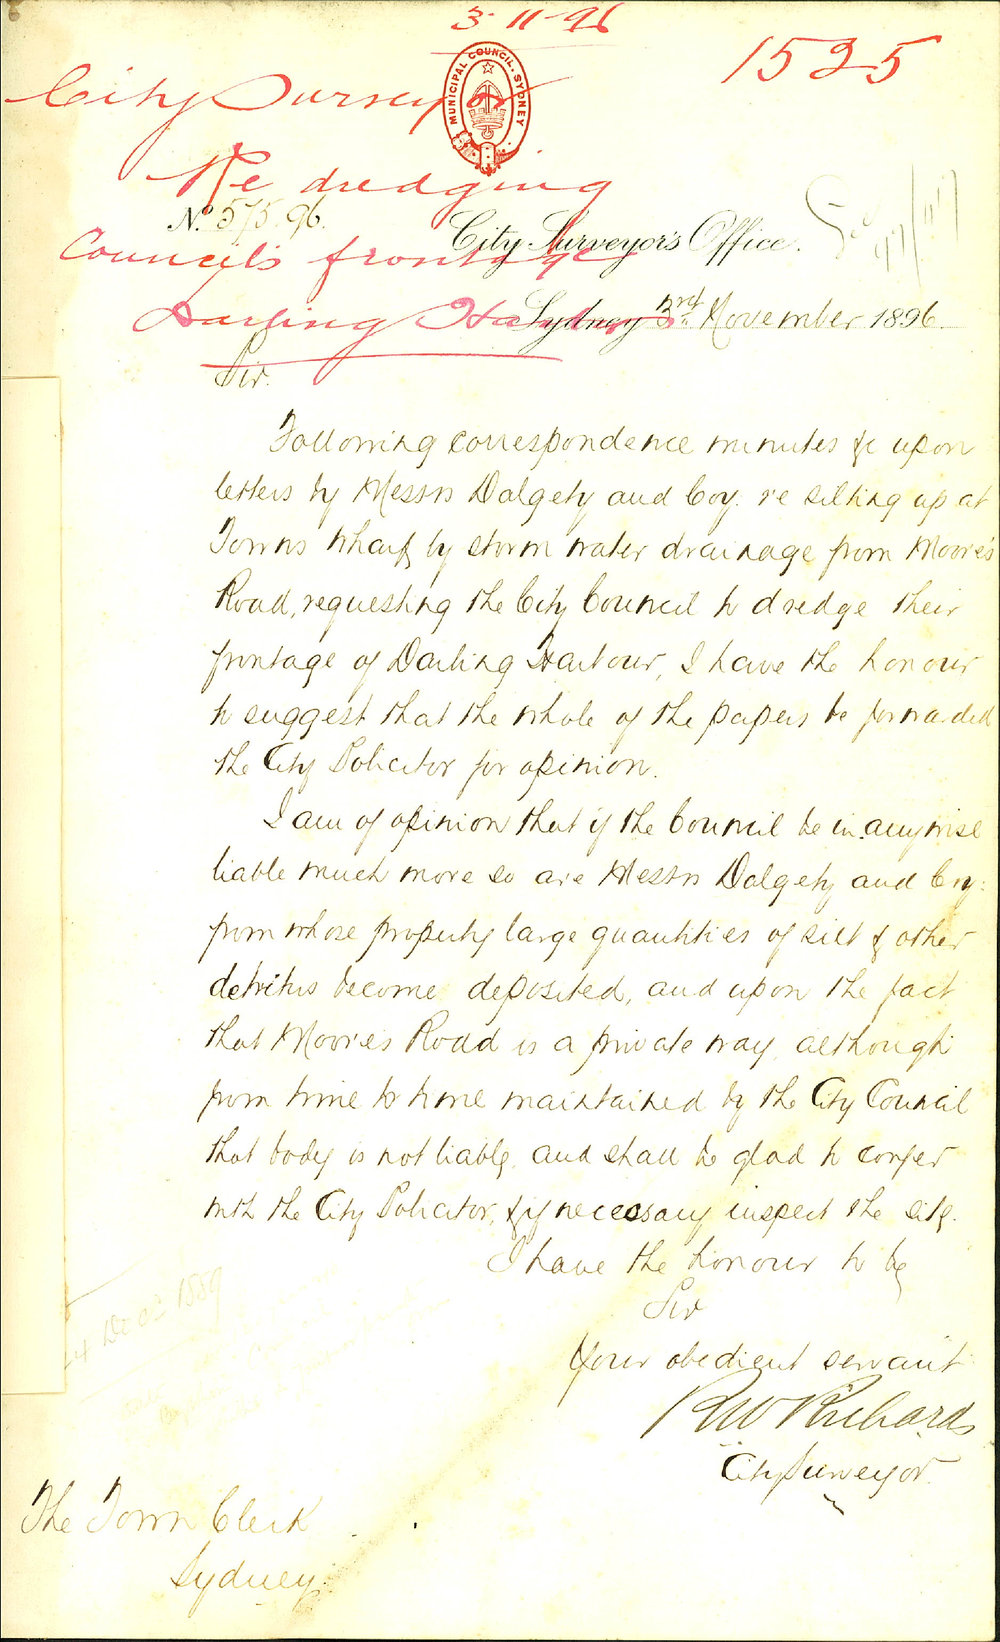 3-11-96
1525
MUNICIPAL COUNCIL. SYDNEY
City Surveyor
Re dredging
No. 575.96.
Council's frontage
City Surveyor's Office.
Darling Harbour
Sydney 3rd November 1896.
Sir.
Following correspondence minutes &c upon
letters by Messrs Dalgety and Coy. re silting up at
Towns Wharf by storm water drainage from Moore's
Road, requesting the City Council to dredge their
frontage of Darling Harbour, I have the honour
to suggest that the whole of the papers be forwarded
the City Solicitor for opinion.
I am of opinion that if the Council be in anywise
liable much more so are Messrs Dalgety and Coy:
from whose property large quantities of silt & other
detritus become deposited, and upon the fact
that Moore's Road is a private way, although
from time to time maintained by the City Council
that body is not liable, and shall be glad to confer
with the City Solicitor, & if necessary inspect the site.
I have the honour to be
Sir
Your obedient servant
RW Richards
City Surveyor.
The Town Clerk
Sydney.